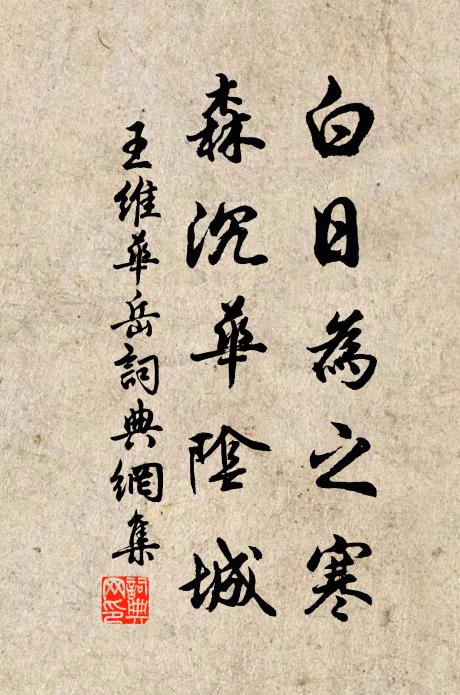 白日為之寒
森沉華陰城
王維華岳詞典網集
詞典網印